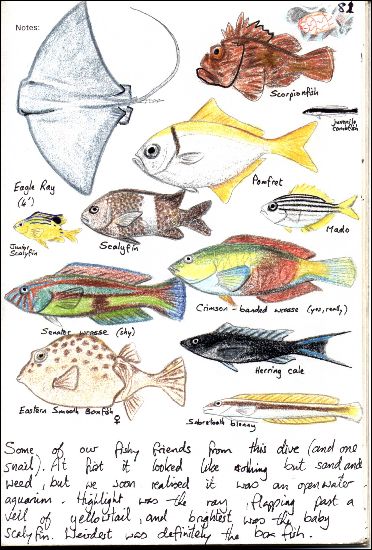 Notes:
81
Scorpionfish
Juvenile
combfish
Pomfret
Eagle Ray
(4')
Mado
Junior
Scalyfin
Scalyfin
Crimson-banded wrasse (yes, really)
Senator wrasse (shy)
Herring cale
Eastern Smooth Boxfish
♀
Sabretooth blenny
Some of our fishy friends from this dive (and one
snail). At first it looked like nothing but sand and
weed, but we soon realised it was an open water
aquarium. Highlight was the ray, flapping past a
veil of yellowtail, and brightest was the baby
scalyfin. Weirdest was definitely the box fish.